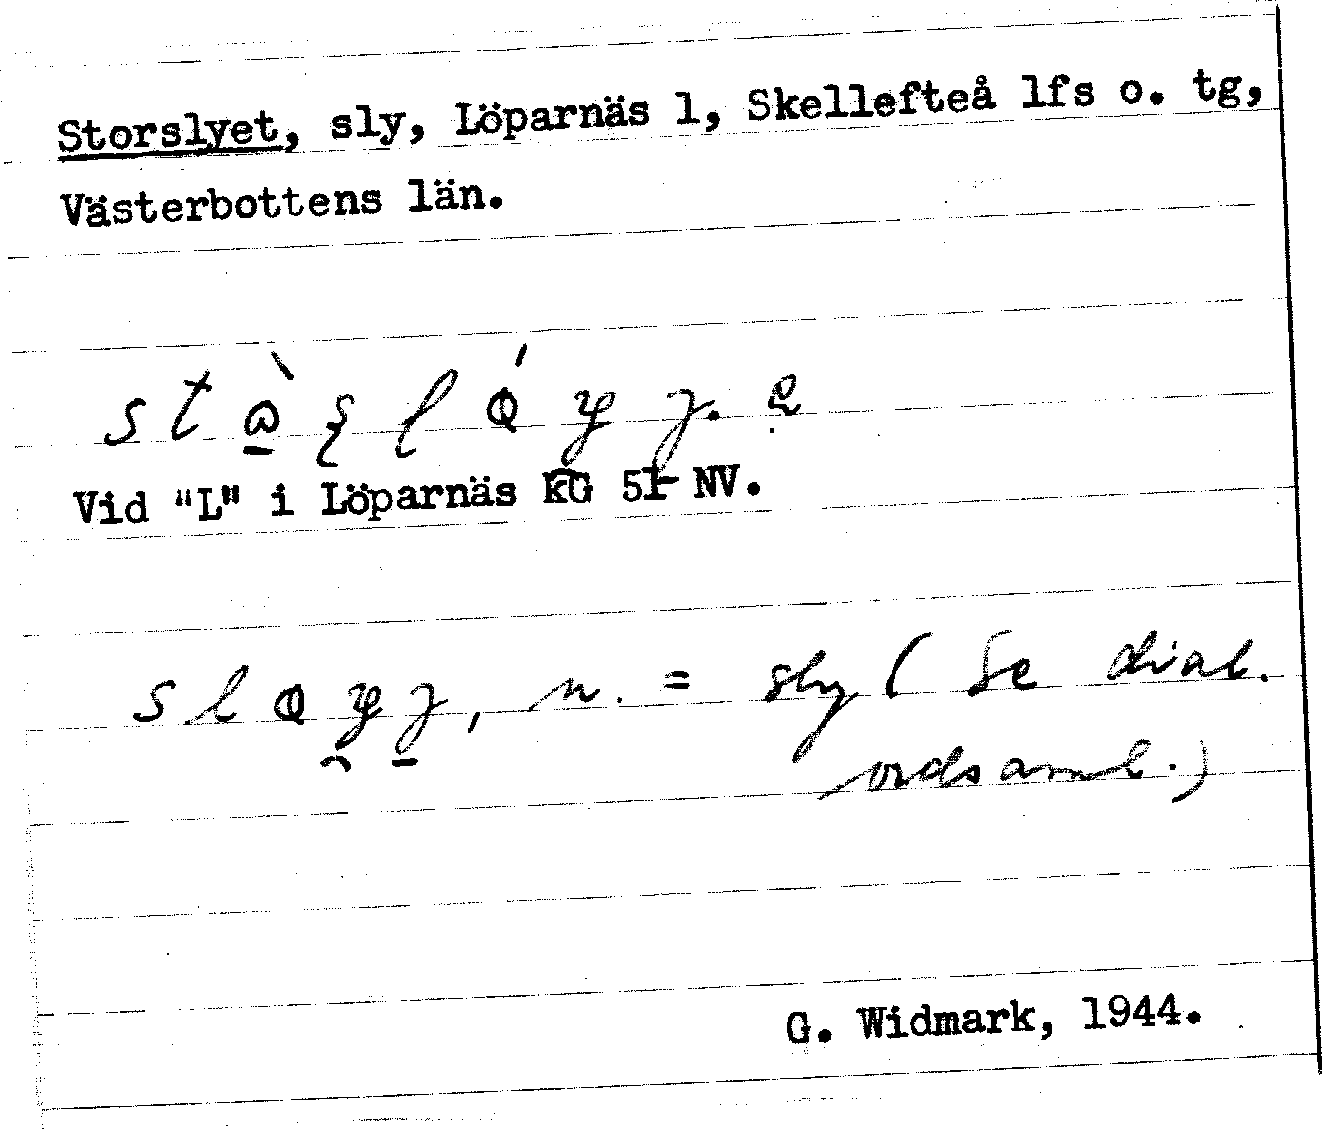 Storslyet, sly, Löparnäs l, Skellefteå lfs o. tg,
Västerbottens län.
Vid "L" i Löparnäs KG 51 NV.
n. = sly (Se dial.
ordsaml.)
G. Widmark, 1944.